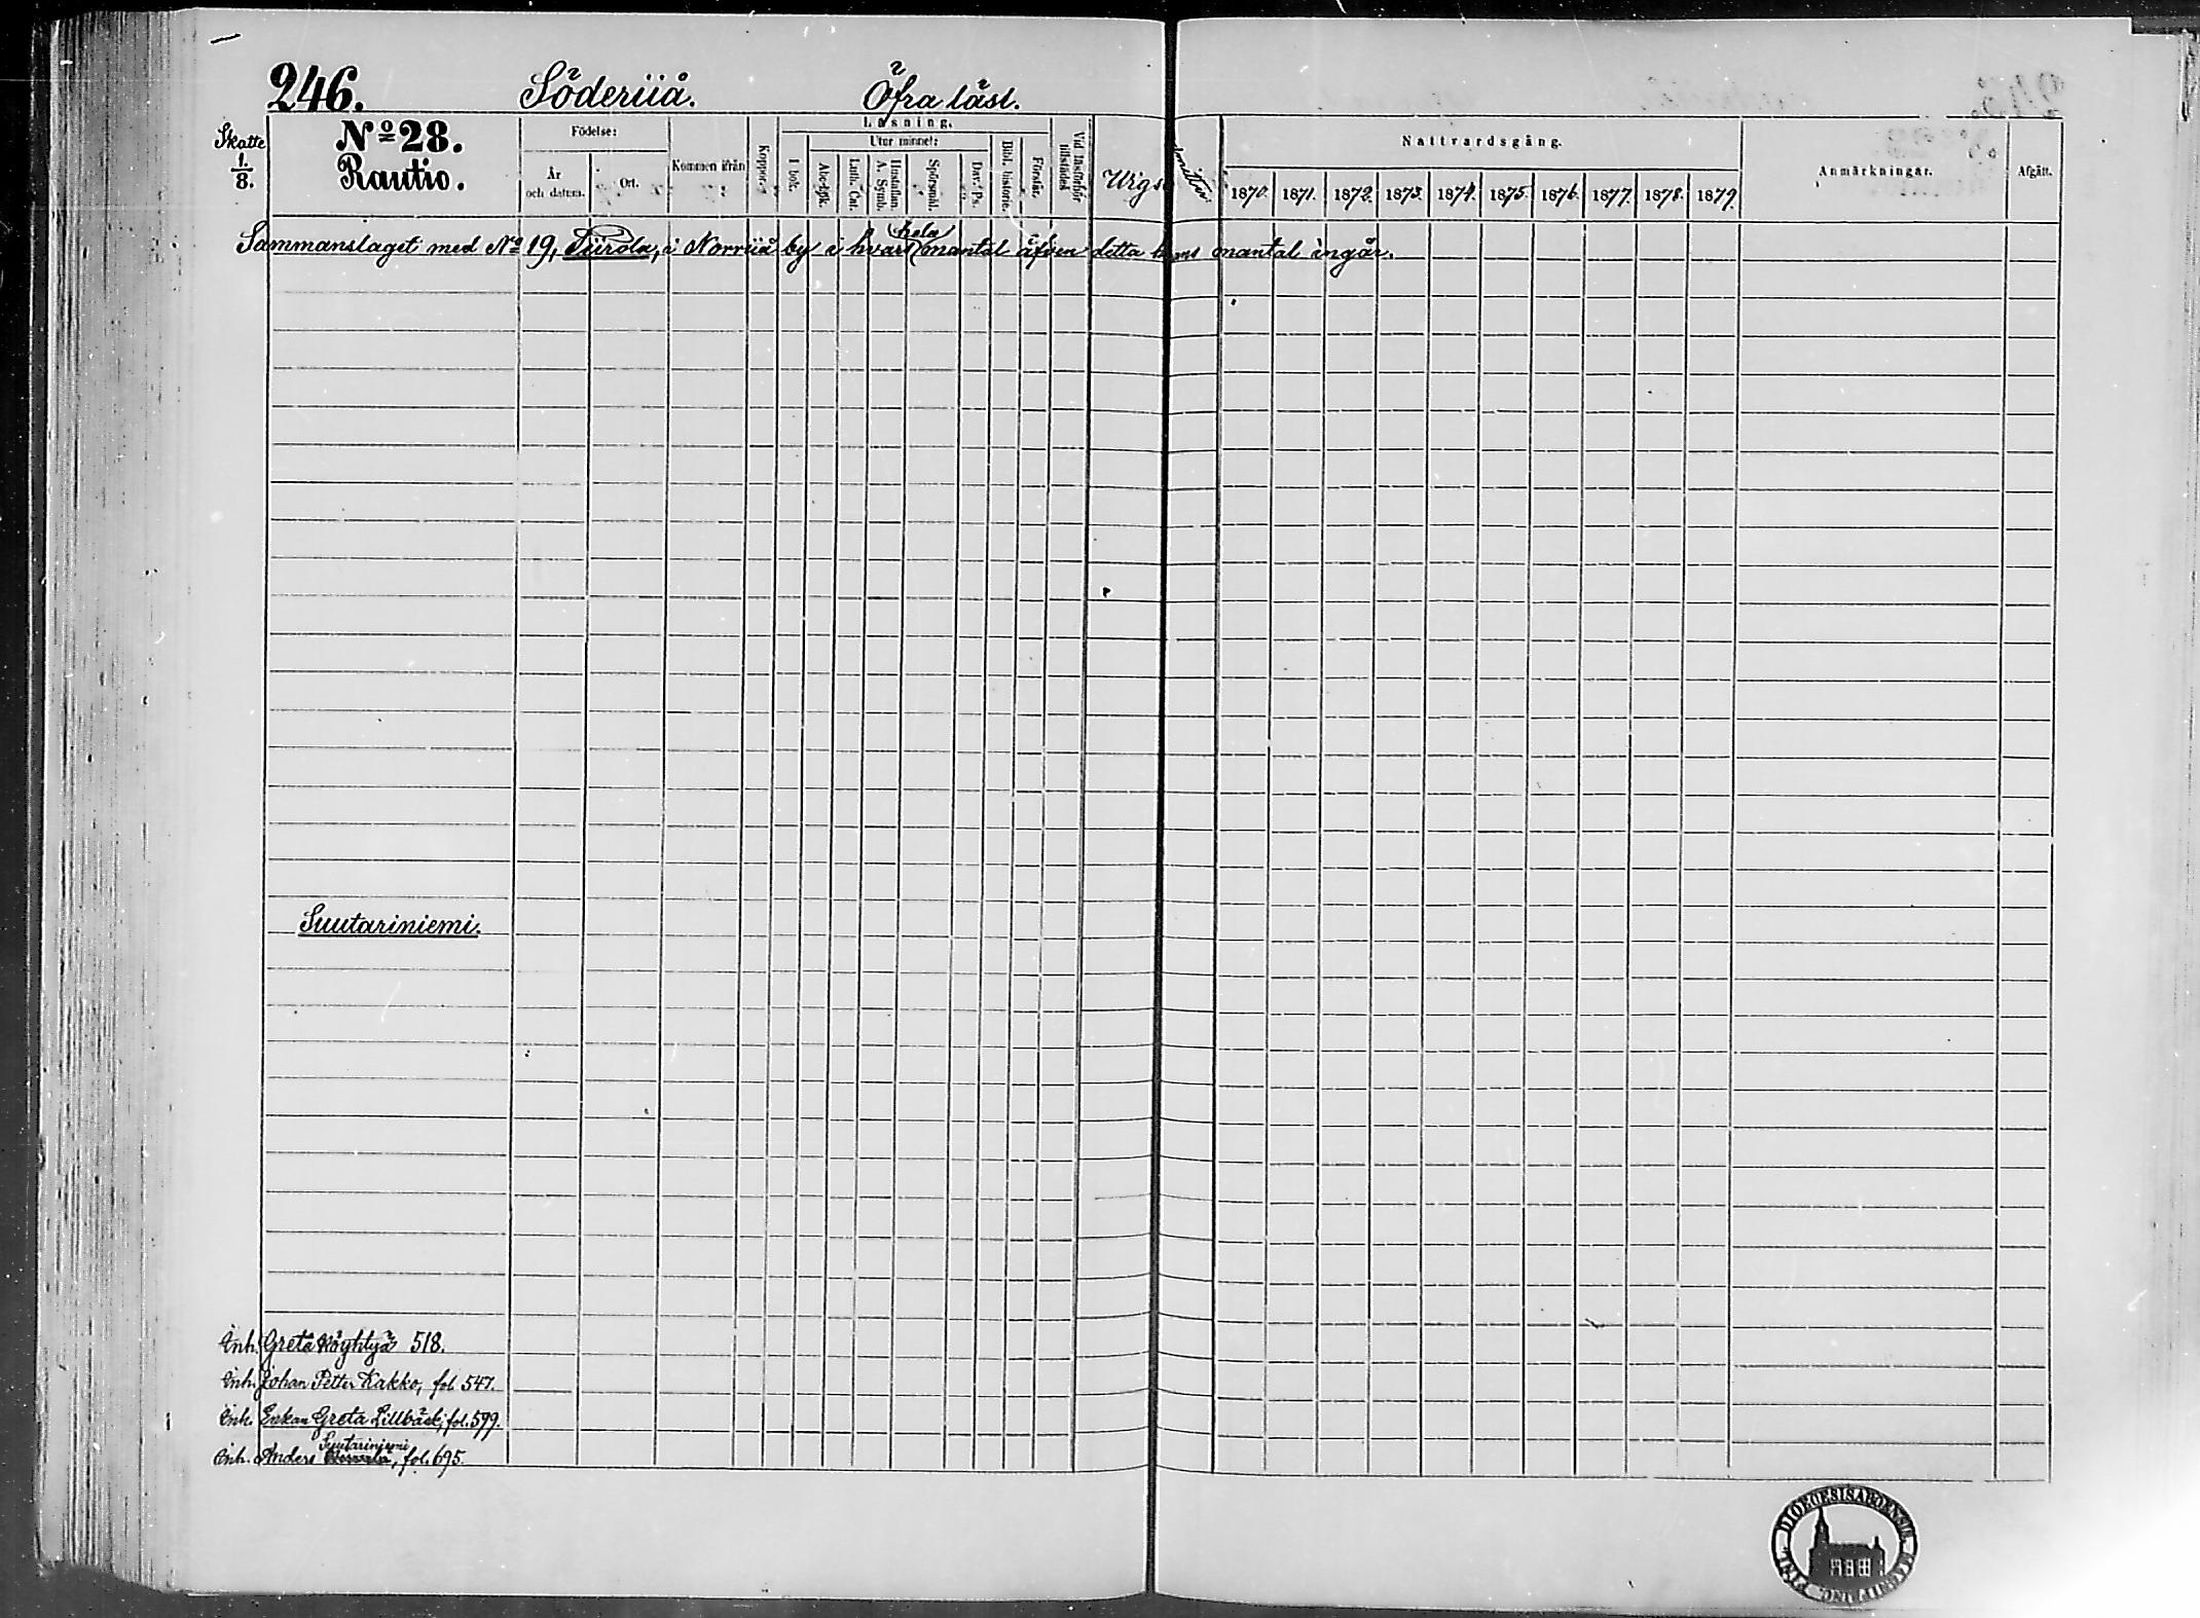 246. Söderiiå. Öfra läsl.
Skatte 1/8.
No 28.
Rautio.
Födelse:
År och datum.
Ort.
Kommen ifrån
Koppor.
Läsning.
I bok.
Utur minnet:
Abc-bok.
Luth. Cat.
Hustaflan. A. Symb.
Spörsmål.
Dav. Ps.
Bibl. historie.
Förstår.
Vid läsförhör tillstädes
Nattvardsgång.
1870. 1871. 1872. 1873. 1874. 1875. 1876. 1877. 1878. 1879.
Anmärkningar.
Afgått.
Sammanslaget med No 19, Tiirola, i Norriiå by i hvars hela mantal äfven detta mantal ingår.
Suutariniemi.
Inh. Greta Köyhtyä 518.
Inh. Johan Petter Kakko, fol 547.
Inh. Enkan Greta Lillbäck, fol. 599.
Inh. Anders Suutariniemi, fol. 695.
DIOECESIS ABOENSIS